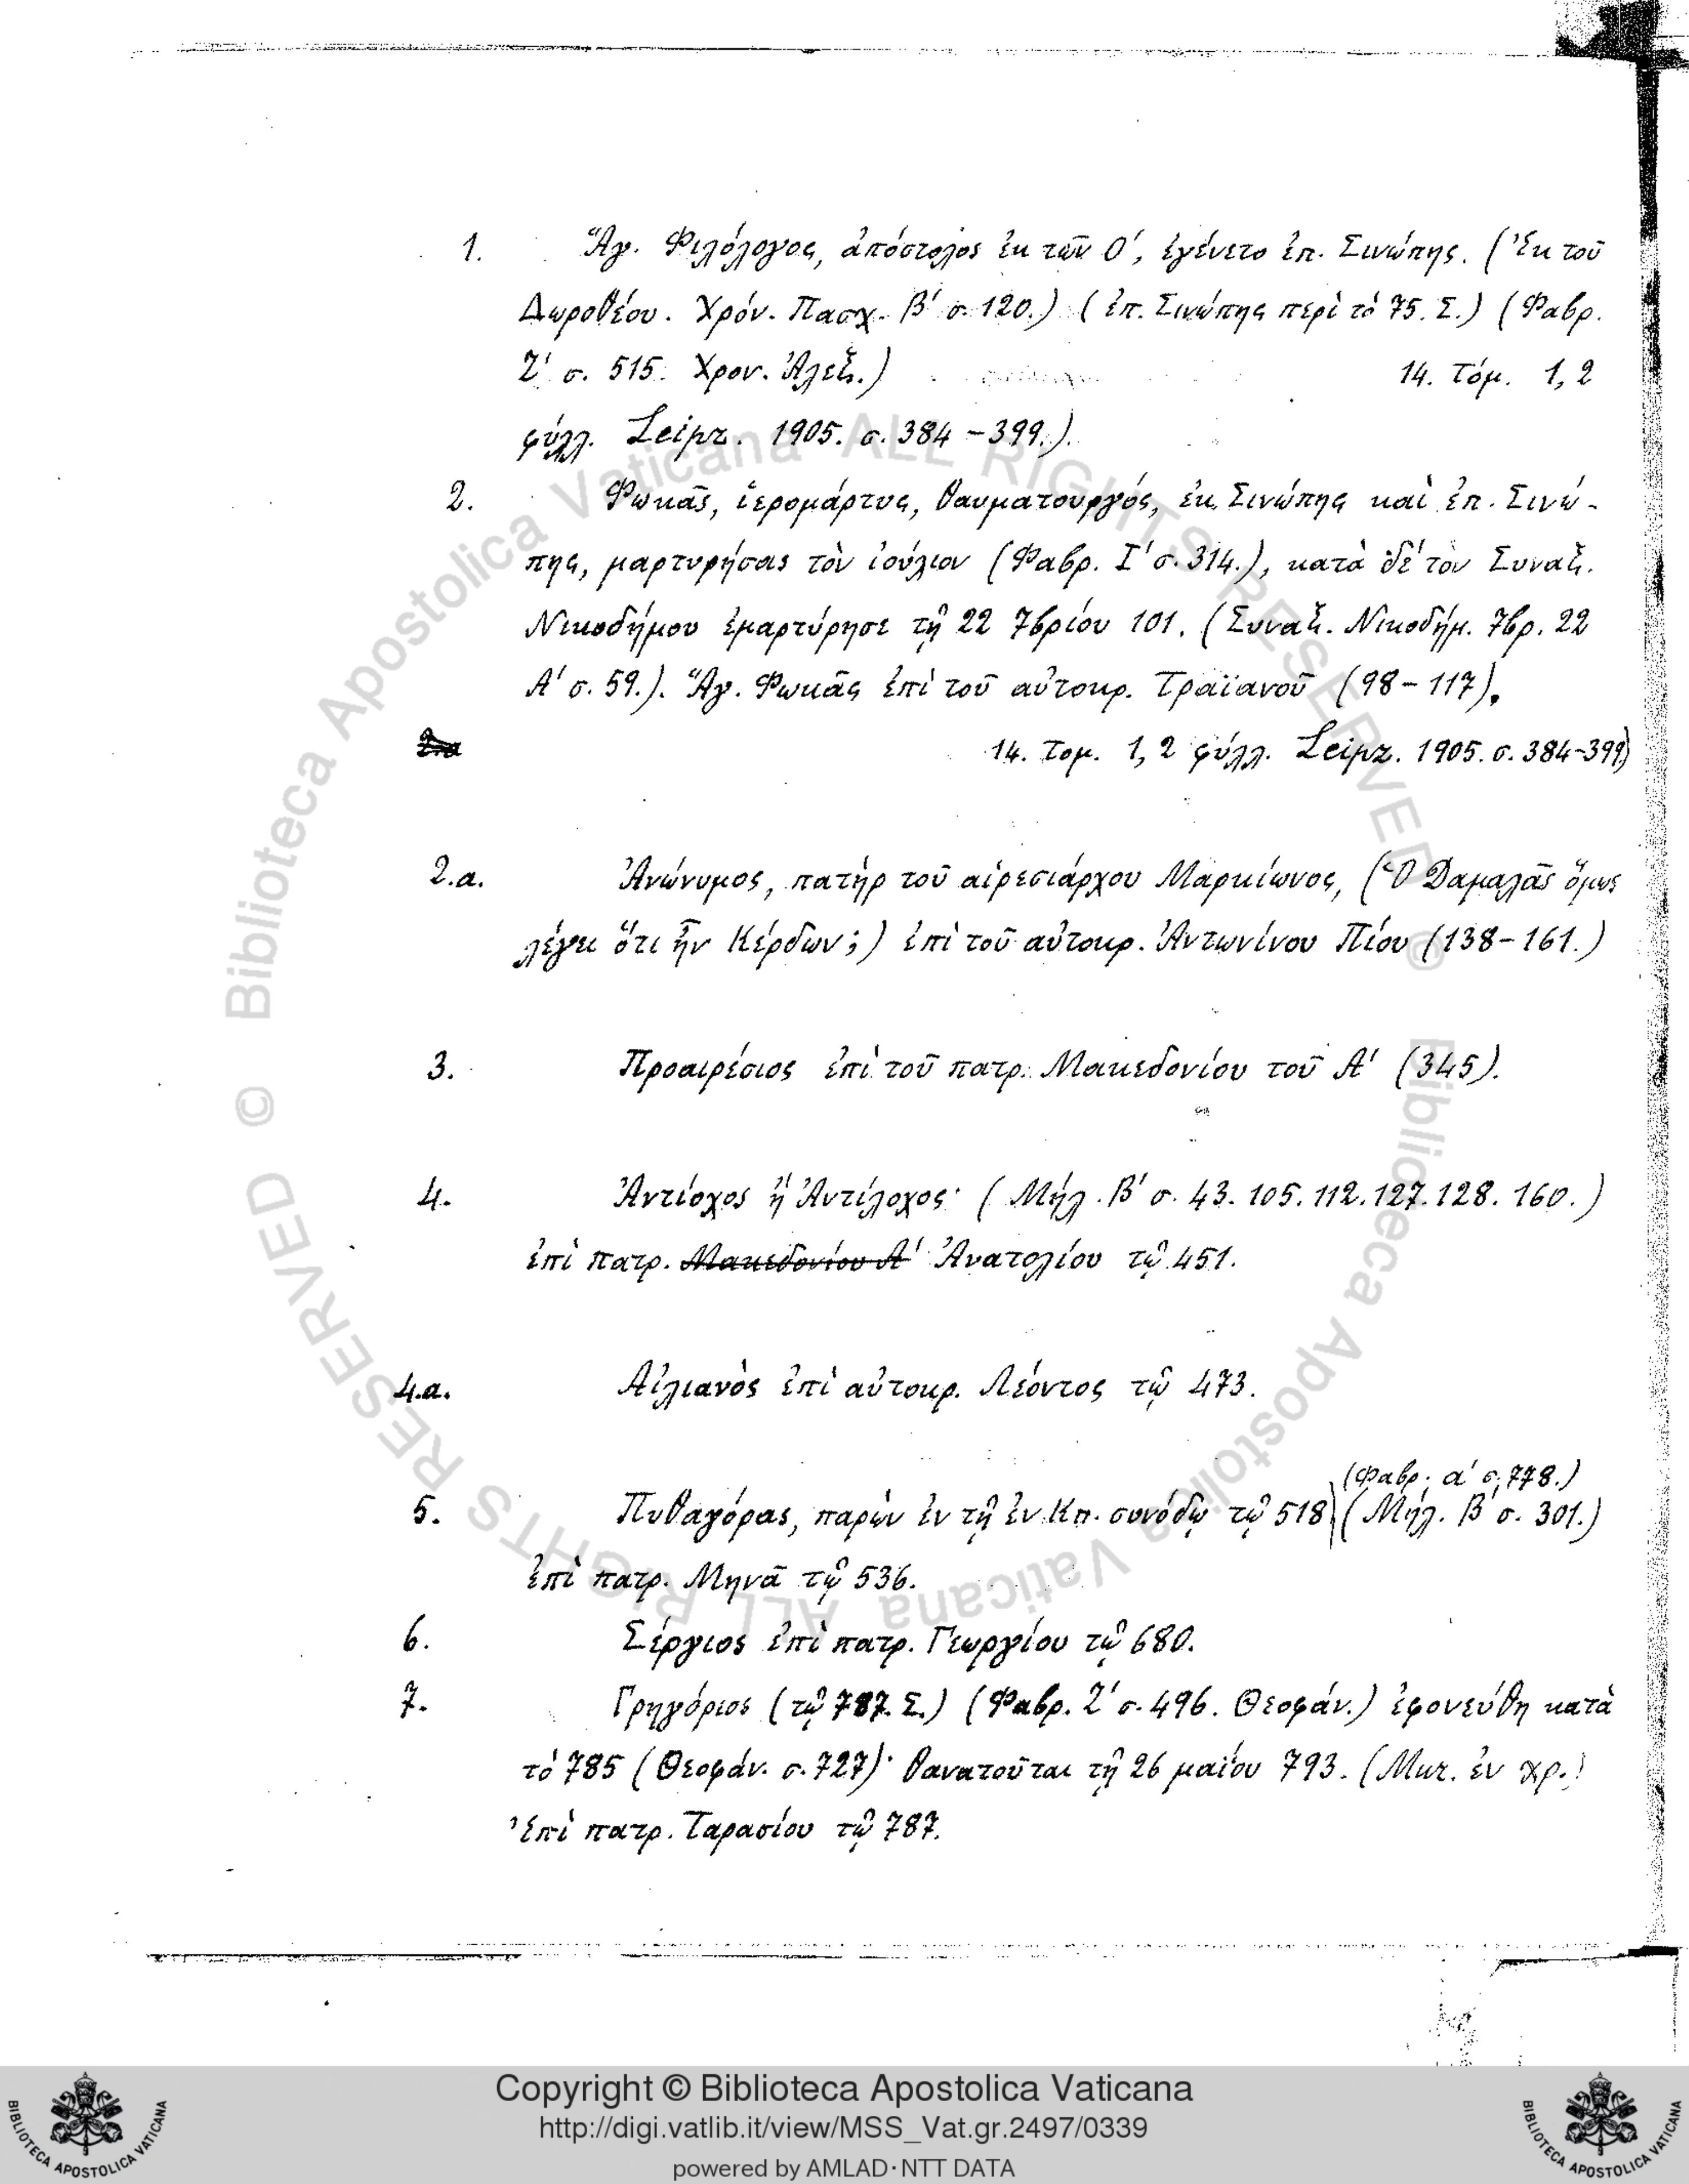 1. Ἅγ. Φιλόλογος, ἀπόστολος ἐκ τῶν Ο΄, ἐγένετο ἐπ. Σινώπης. (Ἐκ τοῦ
Δωροθέου. Χρόν. Πασχ. Β΄ σ. 120.) (ἐπ. Σινώπης περὶ τὸ 75. Σ.) (Φαβρ.
Ζ΄ σ. 515. Χρον. Ἀλεξ.) 14. Τόμ. 1, 2
φύλλ. Leipz. 1905. σ. 384-399.).
2. Φωκᾶς, ἱερομάρτυς, θαυματουργός, ἐκ Σινώπης καὶ ἐπ. Σινώ-
πης, μαρτυρήσας τὸν ἰούλιον (Φαβρ. Ι΄ σ. 314.), κατὰ δὲ τὸν Συναξ.
Νικοδήμου ἐμαρτύρησε τῇ 22 7βρίου 101. (Συναξ. Νικοδήμ. 7βρ. 22
Α΄ σ. 59.). Ἅγ. Φωκᾶς ἐπὶ τοῦ αὐτοκρ. Τραϊανοῦ (98-117).
14. Τομ. 1, 2 φύλλ. Leipz. 1905. σ. 384-399)
2.α. Ἀνώνυμος, πατὴρ τοῦ αἱρεσιάρχου Μαρκίωνος, (Ὁ Δαμαλᾶς ὅμως
λέγει ὅτι ἦν Κέρδων;) ἐπὶ τοῦ αὐτοκρ. Ἀντωνίνου Πίου (138-161.)
3. Προαιρέσιος ἐπὶ τοῦ πατρ. Μακεδονίου τοῦ Α΄ (345).
4. Ἀντίοχος ἢ Ἀντίλοχος· (Μήλ. Β΄ σ. 43. 105. 112. 127. 128. 160.)
ἐπὶ πατρ. Μακεδονίου Α΄ Ἀνατολίου τῷ 451.
4.α. Αἰλιανὸς ἐπὶ αὐτοκρ. Λέοντος τῷ 473.
(Φαβρ. α΄ σ. 778.)
5. Πυθαγόρας, παρὼν ἐν τῇ ἐν Κπ. συνόδῳ τῷ 518 (Μήλ. Β΄ σ. 301.)
ἐπὶ πατρ. Μηνᾶ τῷ 536.
6. Σέργιος ἐπὶ πατρ. Γεωργίου τῷ 680.
7. Γρηγόριος (τῷ 787. Σ.) (Φαβρ. Ζ΄ σ. 496. Θεοφάν.) ἐφονεύθη κατὰ
τὸ 785 (Θεοφάν. σ. 727)· θανατοῦται τῇ 26 μαΐου 793. (Μικ. ἐν χρ.)
Ἐπὶ πατρ. Ταρασίου τῷ 787.
© Biblioteca Apostolica Vaticana ALL RIGHTS RESERVED
© Biblioteca Apostolica Vaticana ALL RIGHTS RESERVED
Copyright © Biblioteca Apostolica Vaticana
http://digi.vatlib.it/view/MSS_Vat.gr.2497/0339
powered by AMLAD·NTT DATA
BIBLIOTECA APOSTOLICA VATICANA
BIBLIOTECA APOSTOLICA VATICANA